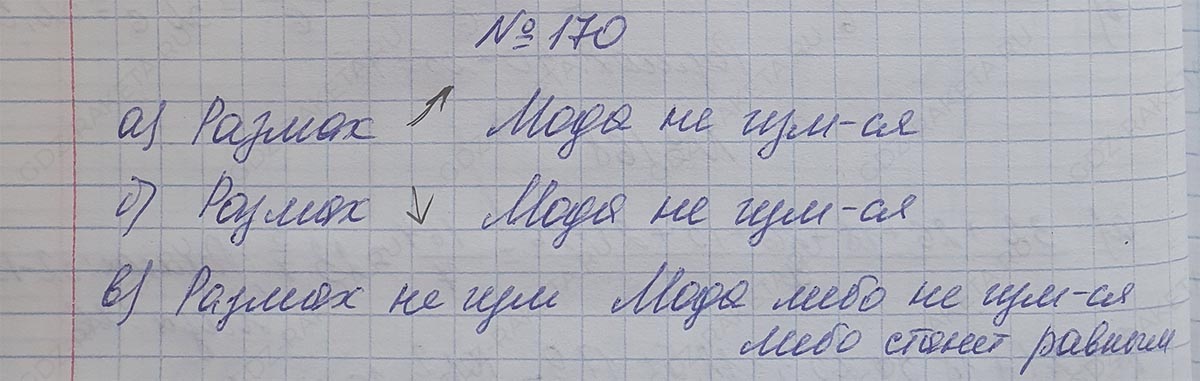 № 170
а) Размах ↗ Мода не изм-ся
б) Размах ↓ Мода не изм-ся
в) Размах не изм Мода либо не изм-ся
либо станет равным